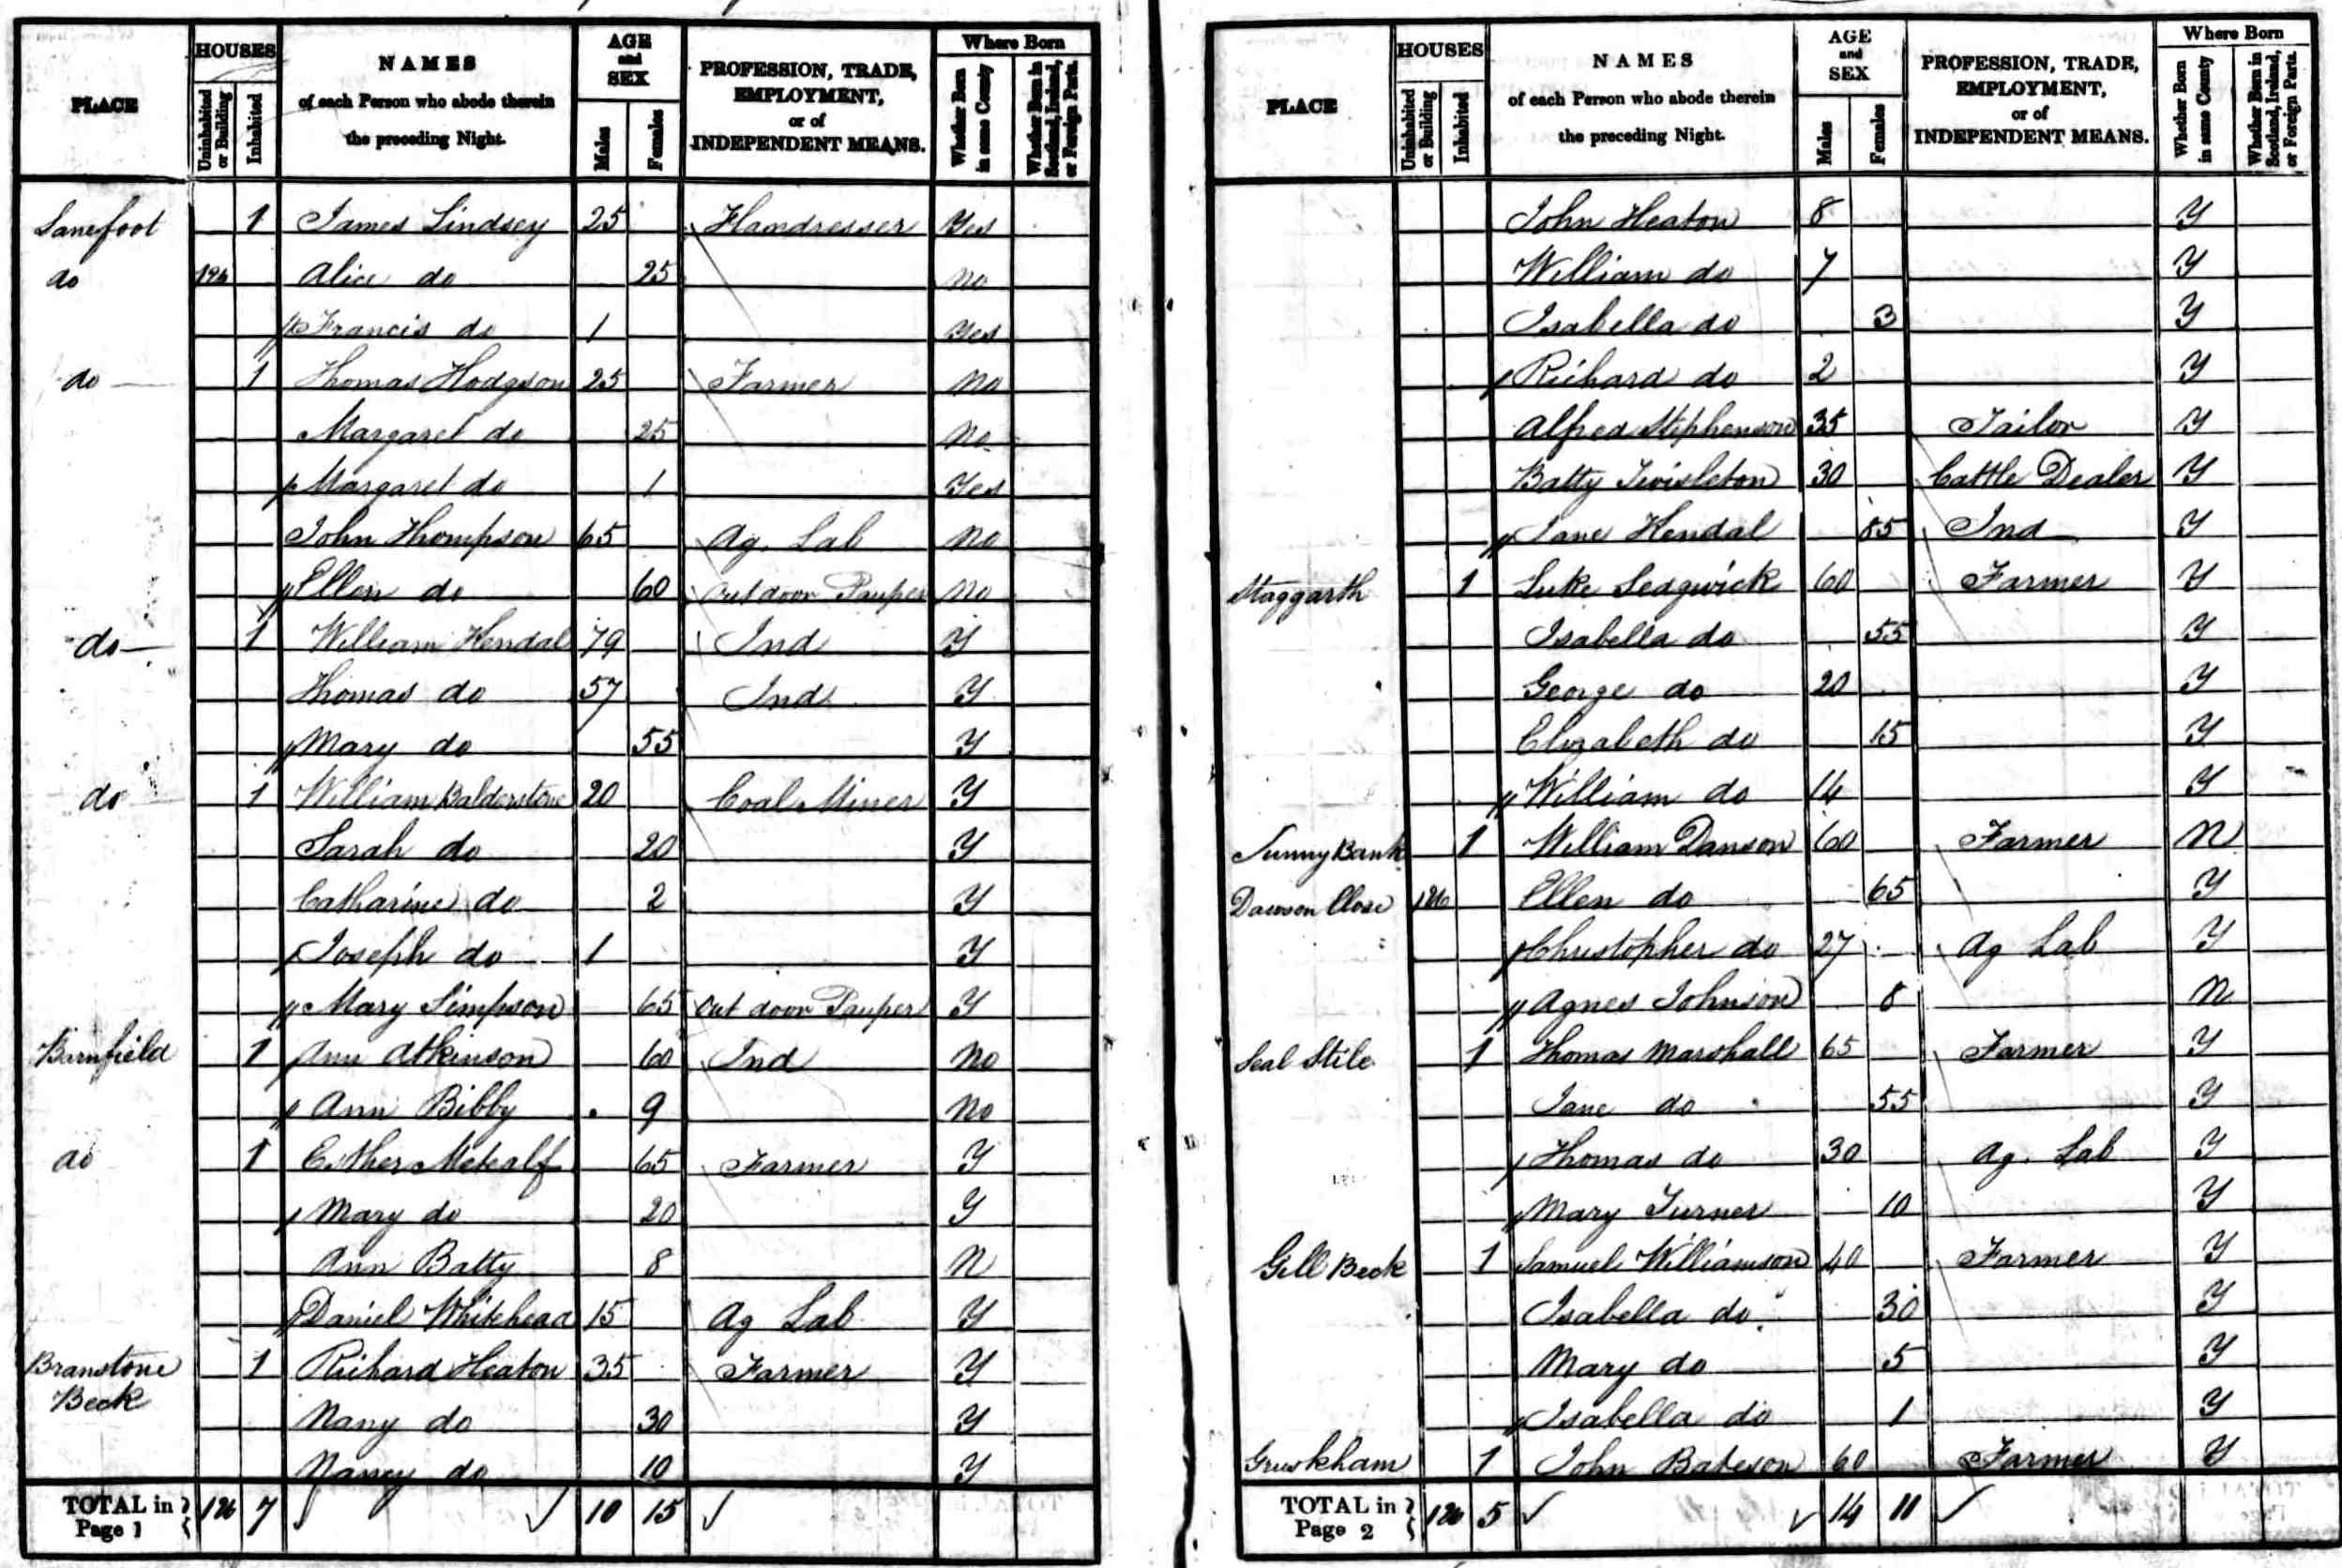 PLACE HOUSES Uninhabited or Building Inhabited NAMES of each Person who abode therein the preceding Night. AGE and SEX Males Females PROFESSION, TRADE, EMPLOYMENT, or of INDEPENDENT MEANS. Where Born Whether Born in same County Whether Born in Scotland, Ireland, or Foreign Parts.
Lanefoot 1 James Lindsey 25 Yes
do Alice do 25 No
Francis do 1 Yes
do 1 Thomas Hodgson 25 Farmer No
Margaret do 25 No
Margaret do 1 Yes
John Thompson 65 Ag. Lab No
Ellen do 60 Out door Pauper No
do 1 William Kendal 79 Ind Y
Thomas do 57 Ind Y
Mary do 55 Y
do 1 William Balderstone 20 Coal Miner Y
Sarah do 20 Y
Catharine do 2 Y
Joseph do 1 Y
Mary Simpson 65 Out door Pauper Y
Barnfield 1 Ann Atkinson 60 Ind No
Ann Bibby 9 No
do 1 Esther Metcalf 65 Farmer Y
Mary do 20 Y
Ann Batty 8 N
Daniel Whitehead 15 Ag Lab Y
Branstone 1 Richard Heaton 35 Farmer Y
Beck Nany do 30 Y
Nancy do 10 Y
TOTAL in Page 1 7 10 15
PLACE HOUSES Uninhabited or Building Inhabited NAMES of each Person who abode therein the preceding Night. AGE and SEX Males Females PROFESSION, TRADE, EMPLOYMENT, or of INDEPENDENT MEANS. Where Born Whether Born in same County Whether Born in Scotland, Ireland, or Foreign Parts.
John Heaton 8 Y
William do 7 Y
Isabella do 3 Y
Richard do 2 Y
Alfred Stephenson 35 Tailor Y
Batty Twisleton 30 Cattle Dealer Y
Jane Kendal 85 Ind Y
Staggarth 1 Luke Sedgwick 60 Farmer Y
Isabella do 55 Y
George do 20 Y
Elizabeth do 15 Y
William do 14 Y
Sunny Bank 1 William Danson 60 Farmer N
Dawson Close Ellen do 65 Y
Christopher do 27 Ag Lab Y
Agnes Johnson 8 N
Seal Stile 1 Thomas Marshall 65 Farmer Y
Jane do 55 Y
Thomas do 30 Ag. Lab Y
Mary Turner 10 Y
Gill Beck 1 Samuel Williamson 40 Farmer Y
Isabella do 30 Y
Mary do 5 Y
Isabella do 1 Y
1 John Bateson 60 Farmer Y
TOTAL in Page 2 5 14 11